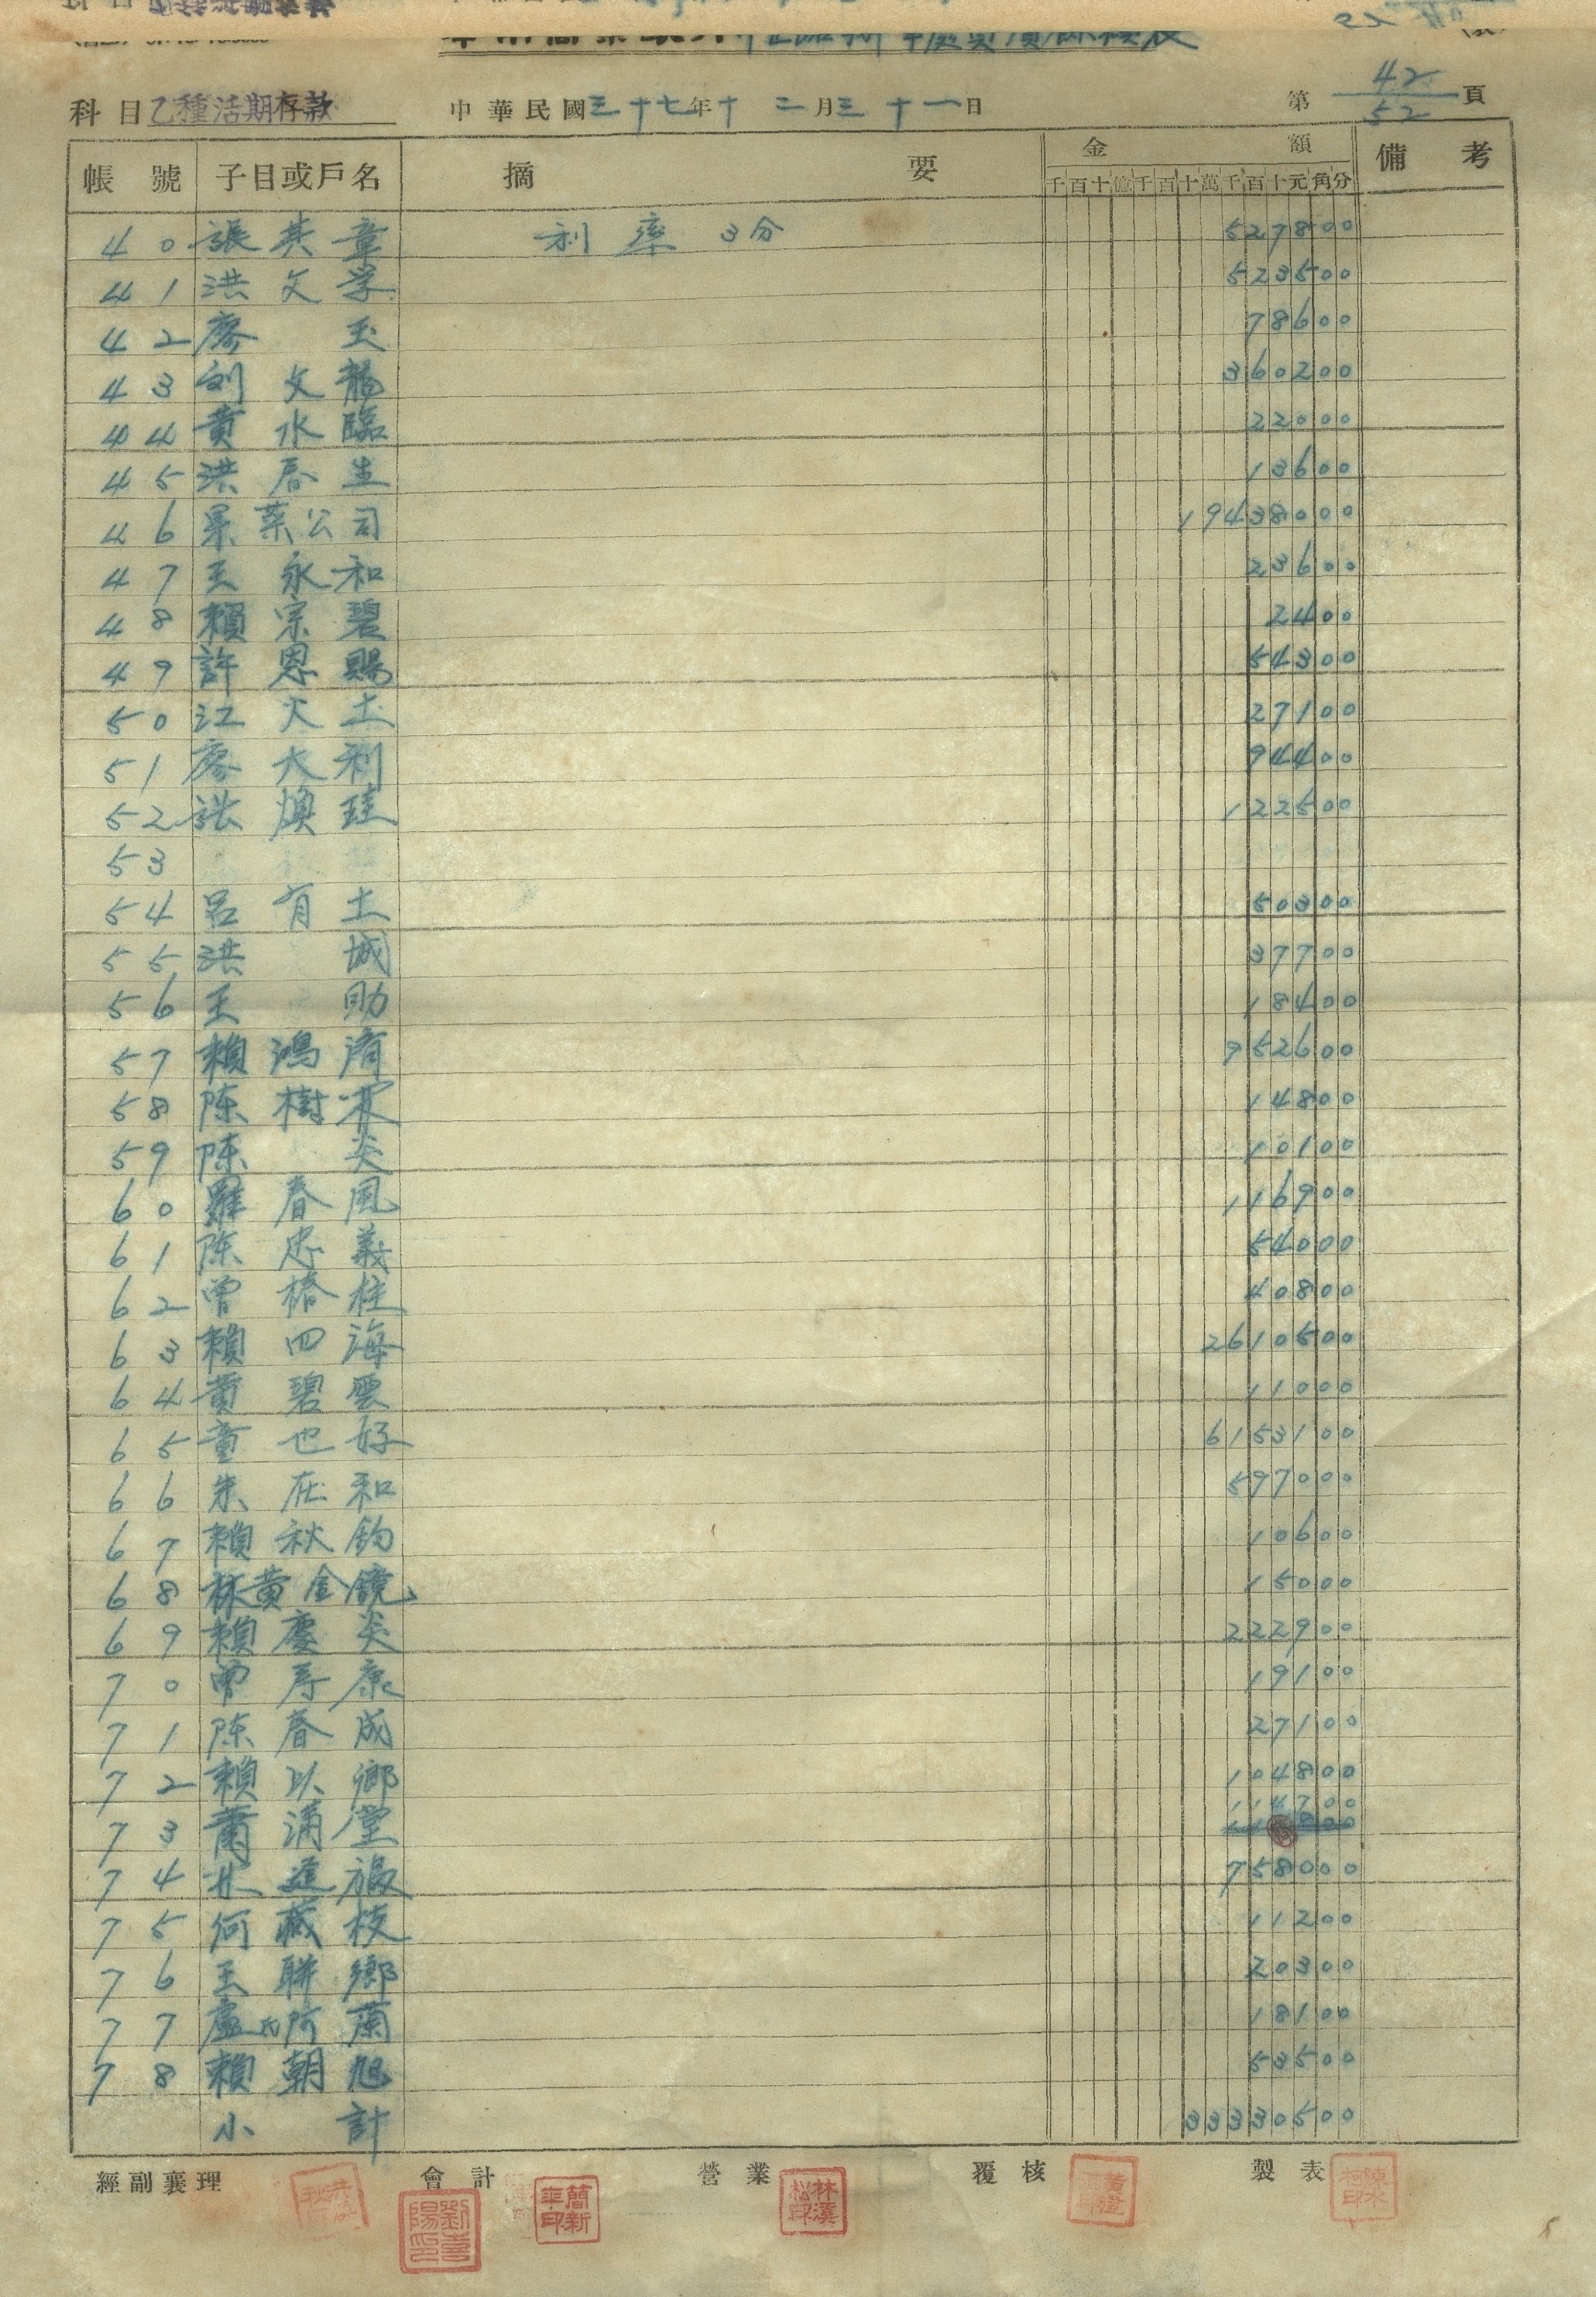 科目乙種活期存款 中華民國三十七年十二月三十一日 第 42/52 頁
帳號 子目或戶名 摘要 金額 備考
千百十億千百十萬千百十元角分
40 張其章 利率 3分 527800
41 洪文学 523500
42 廖玉 78600
43 劉文龍 360200
44 黃水臨 22000
45 洪居生 13600
46 果菜公司 19438000
47 王永和 23600
48 賴宗碧 2400
49 許恩賜 54300
50 江火土 27100
51 廖大利 94400
52 張煥珪 122500
53
54 呂有土 50300
55 洪城 37700
56 王助 18400
57 賴鴻濱 952600
58 陈樹霖 14800
59 陈炎 10100
60 羅春風 116900
61 陈忠義 54000
62 曾椿柱 40800
63 賴四海 2610500
64 黃碧雲 11000
65 童也好 6153100
66 朱在和 597000
67 賴秋鈞 10600
68 林黃金鏡 15000
69 賴慶炎 222900
70 曾寿康 19100
71 陈春成 27100
72 賴以鄉 104800
73 蕭滿堂 114700
74 林進福 758000
75 何藏枝 11200
76 王聯鄉 20300
77 盧氏阿蘭 18100
78 賴朝旭 53500
小計 33330500
經副襄理 會計 營業 覆核 製表
劉壽陽印 簡新本印 林溪松印 陳水柯印